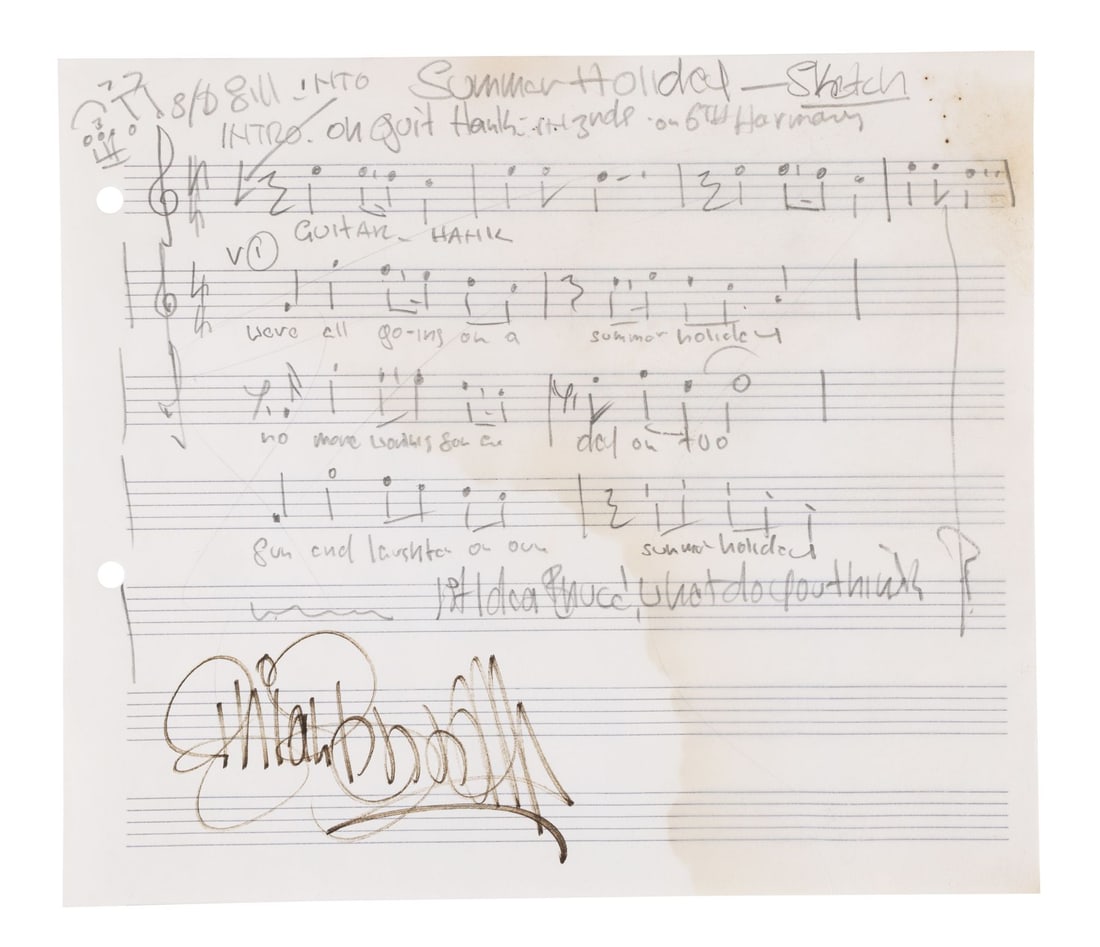 8/8 Bill INTO Summer Holiday — Sketch
INTRO. on guit Hank in 3rds on 6th Harmany
GUITAR - HANK
V 1
were all go-ing on a summer holiday
no more working for a day or two
fun and laughter on our summer holiday
1st Idea Bruce, what do you think ?